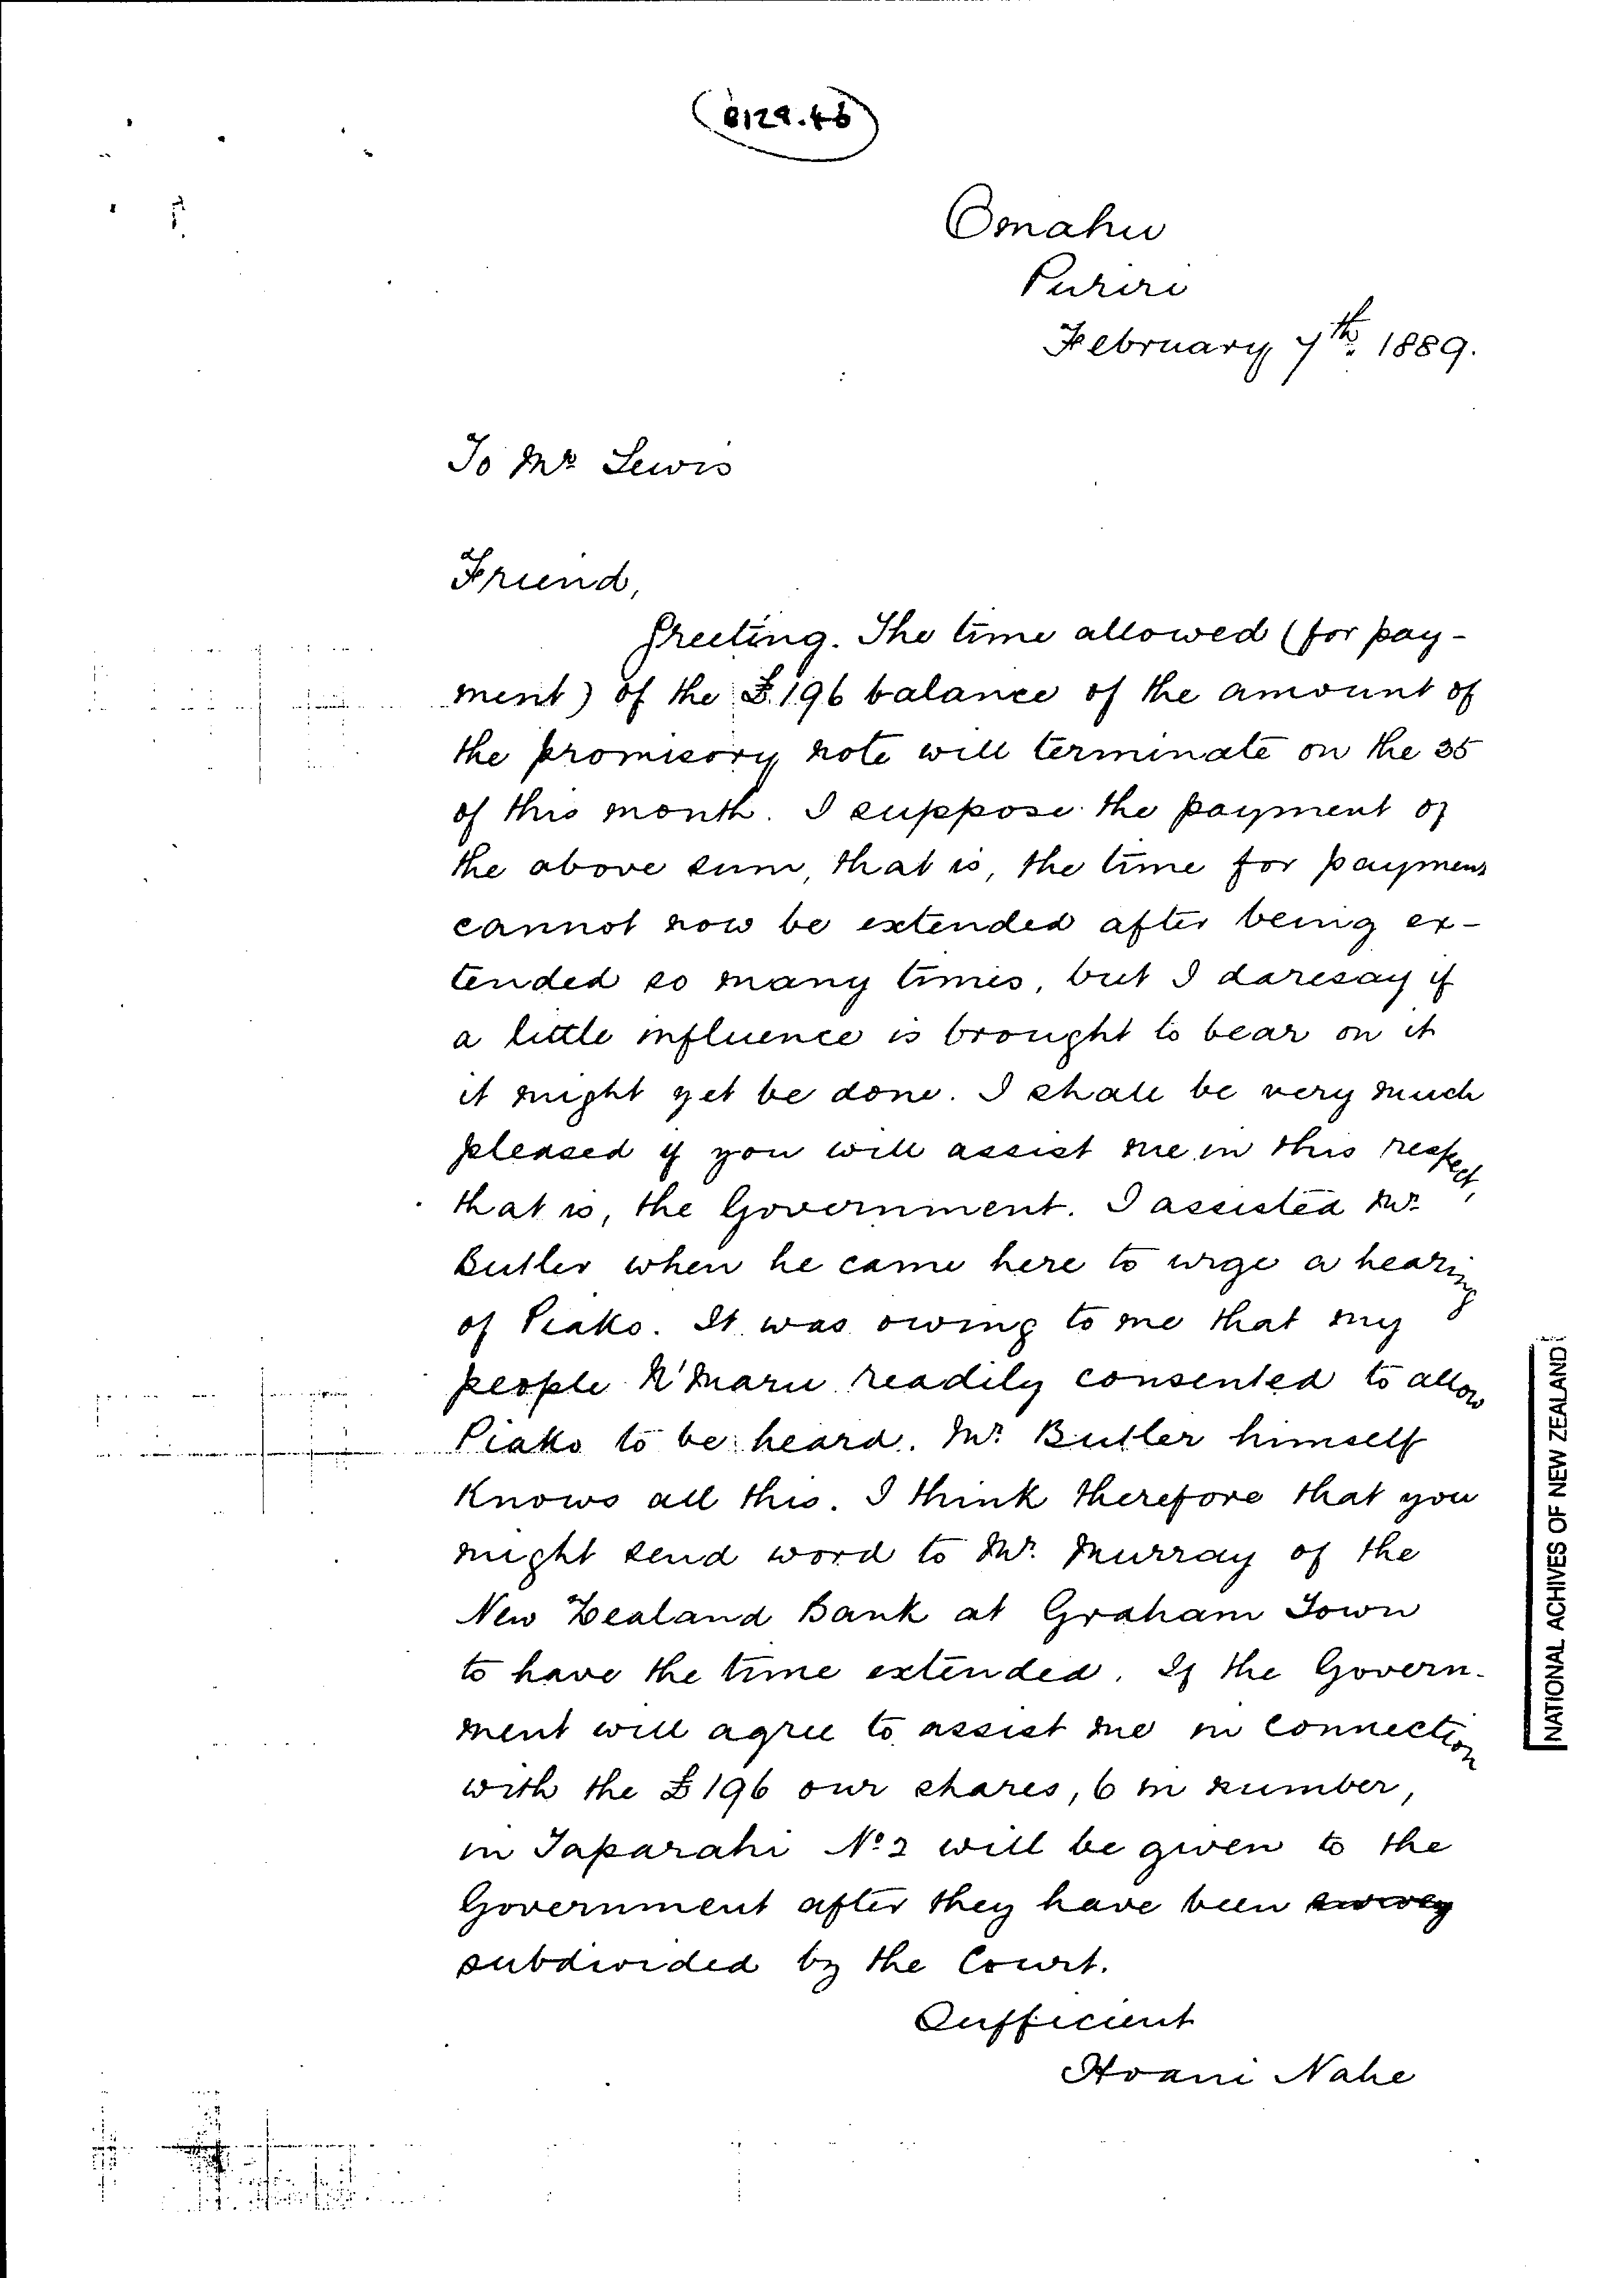 B129.46
Omahu
Puriri
February 7th. 1889.
To Mr Lewis
Friend,
Greeting. The time allowed (for pay-
ment) of the £196 balance of the amount of
the promisory note will terminate on the 35
of this month. I suppose the payment of
the above sum, that is, the time for payment
cannot now be extended after being ex-
tended so many times, but I daresay if
a little influence is brought to bear on it
it might yet be done. I shall be very much
pleased if you will assist me in this respect,
that is, the Government. I assisted Mr.
Butler when he came here to urge a hearing
of Piako. It was owing to me that my
people N'Maru readily consented to allow
Piako to be heard. Mr. Butler himself
knows all this. I think therefore that you
might send word to Mr. Murray of the
New Zealand Bank at Graham Town
to have the time extended. If the Govern-
ment will agree to assist me in connection
with the £196 our shares, 6 in number,
in Taparahi No 2 will be given to the
Government after they have been
subdivided by the Court.
Sufficient
Hoani Nahe
NATIONAL ACHIVES OF NEW ZEALAND